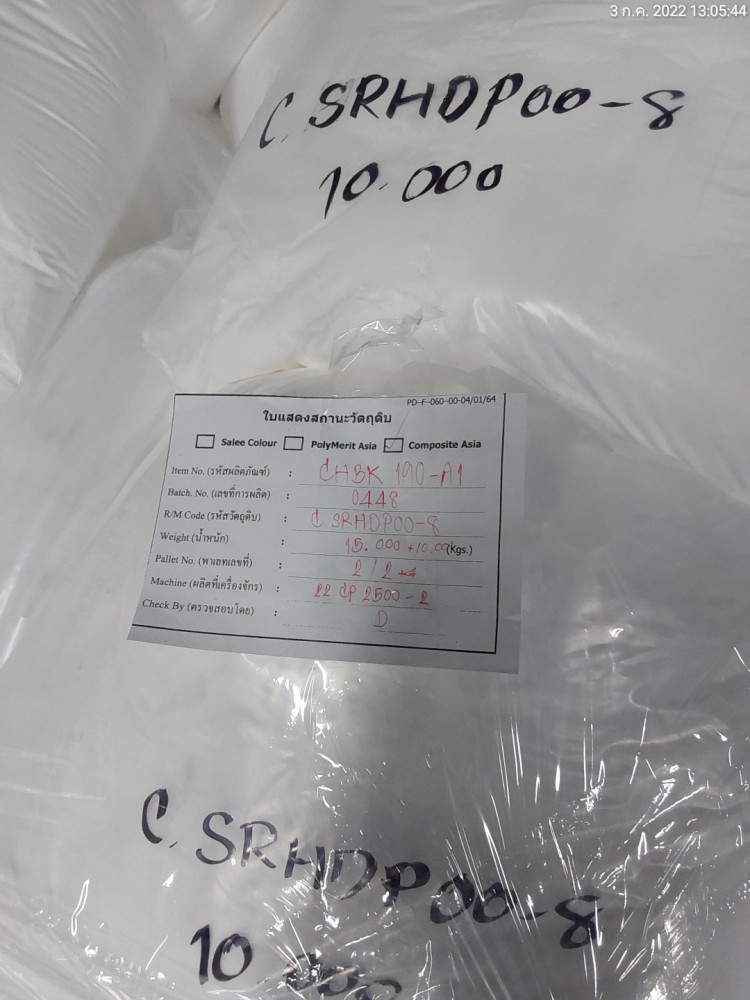 3 ก.ค. 2022 13:05:44
C. SRHDP00-8
10.000
PD-F-060-00-04/01/64
ใบแสดงสถานะวัตถุดิบ
Salee Colour PolyMerit Asia Composite Asia
Item No. (รหัสผลิตภัณฑ์) : CHBK 190-A1
Batch. No. (เลขที่การผลิต) : 0448
R/M Code (รหัสวัตถุดิบ) : C SRHDP00-8
Weight (น้ำหนัก) : 15.000 +10.00 (Kgs.)
Pallet No. (พาเลทเลขที่) : 2/2
Machine (ผลิตที่เครื่องจักร) : 22 CP 2500-2
Check By (ตรวจสอบโดย) : D
C. SRHDP00-8
10.000